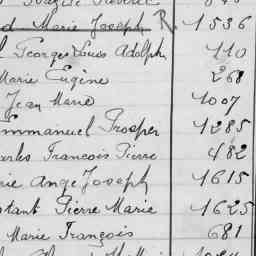 d Marie Joseph R 1536
Georges Louis Adolph 110
Marie Eugène 268
Jean Marie 1007
Emmanuel Prosper 1285
arles François Pierre 482
rie Ange Joseph 1615
stant Pierre Marie 1625
Marie François 681